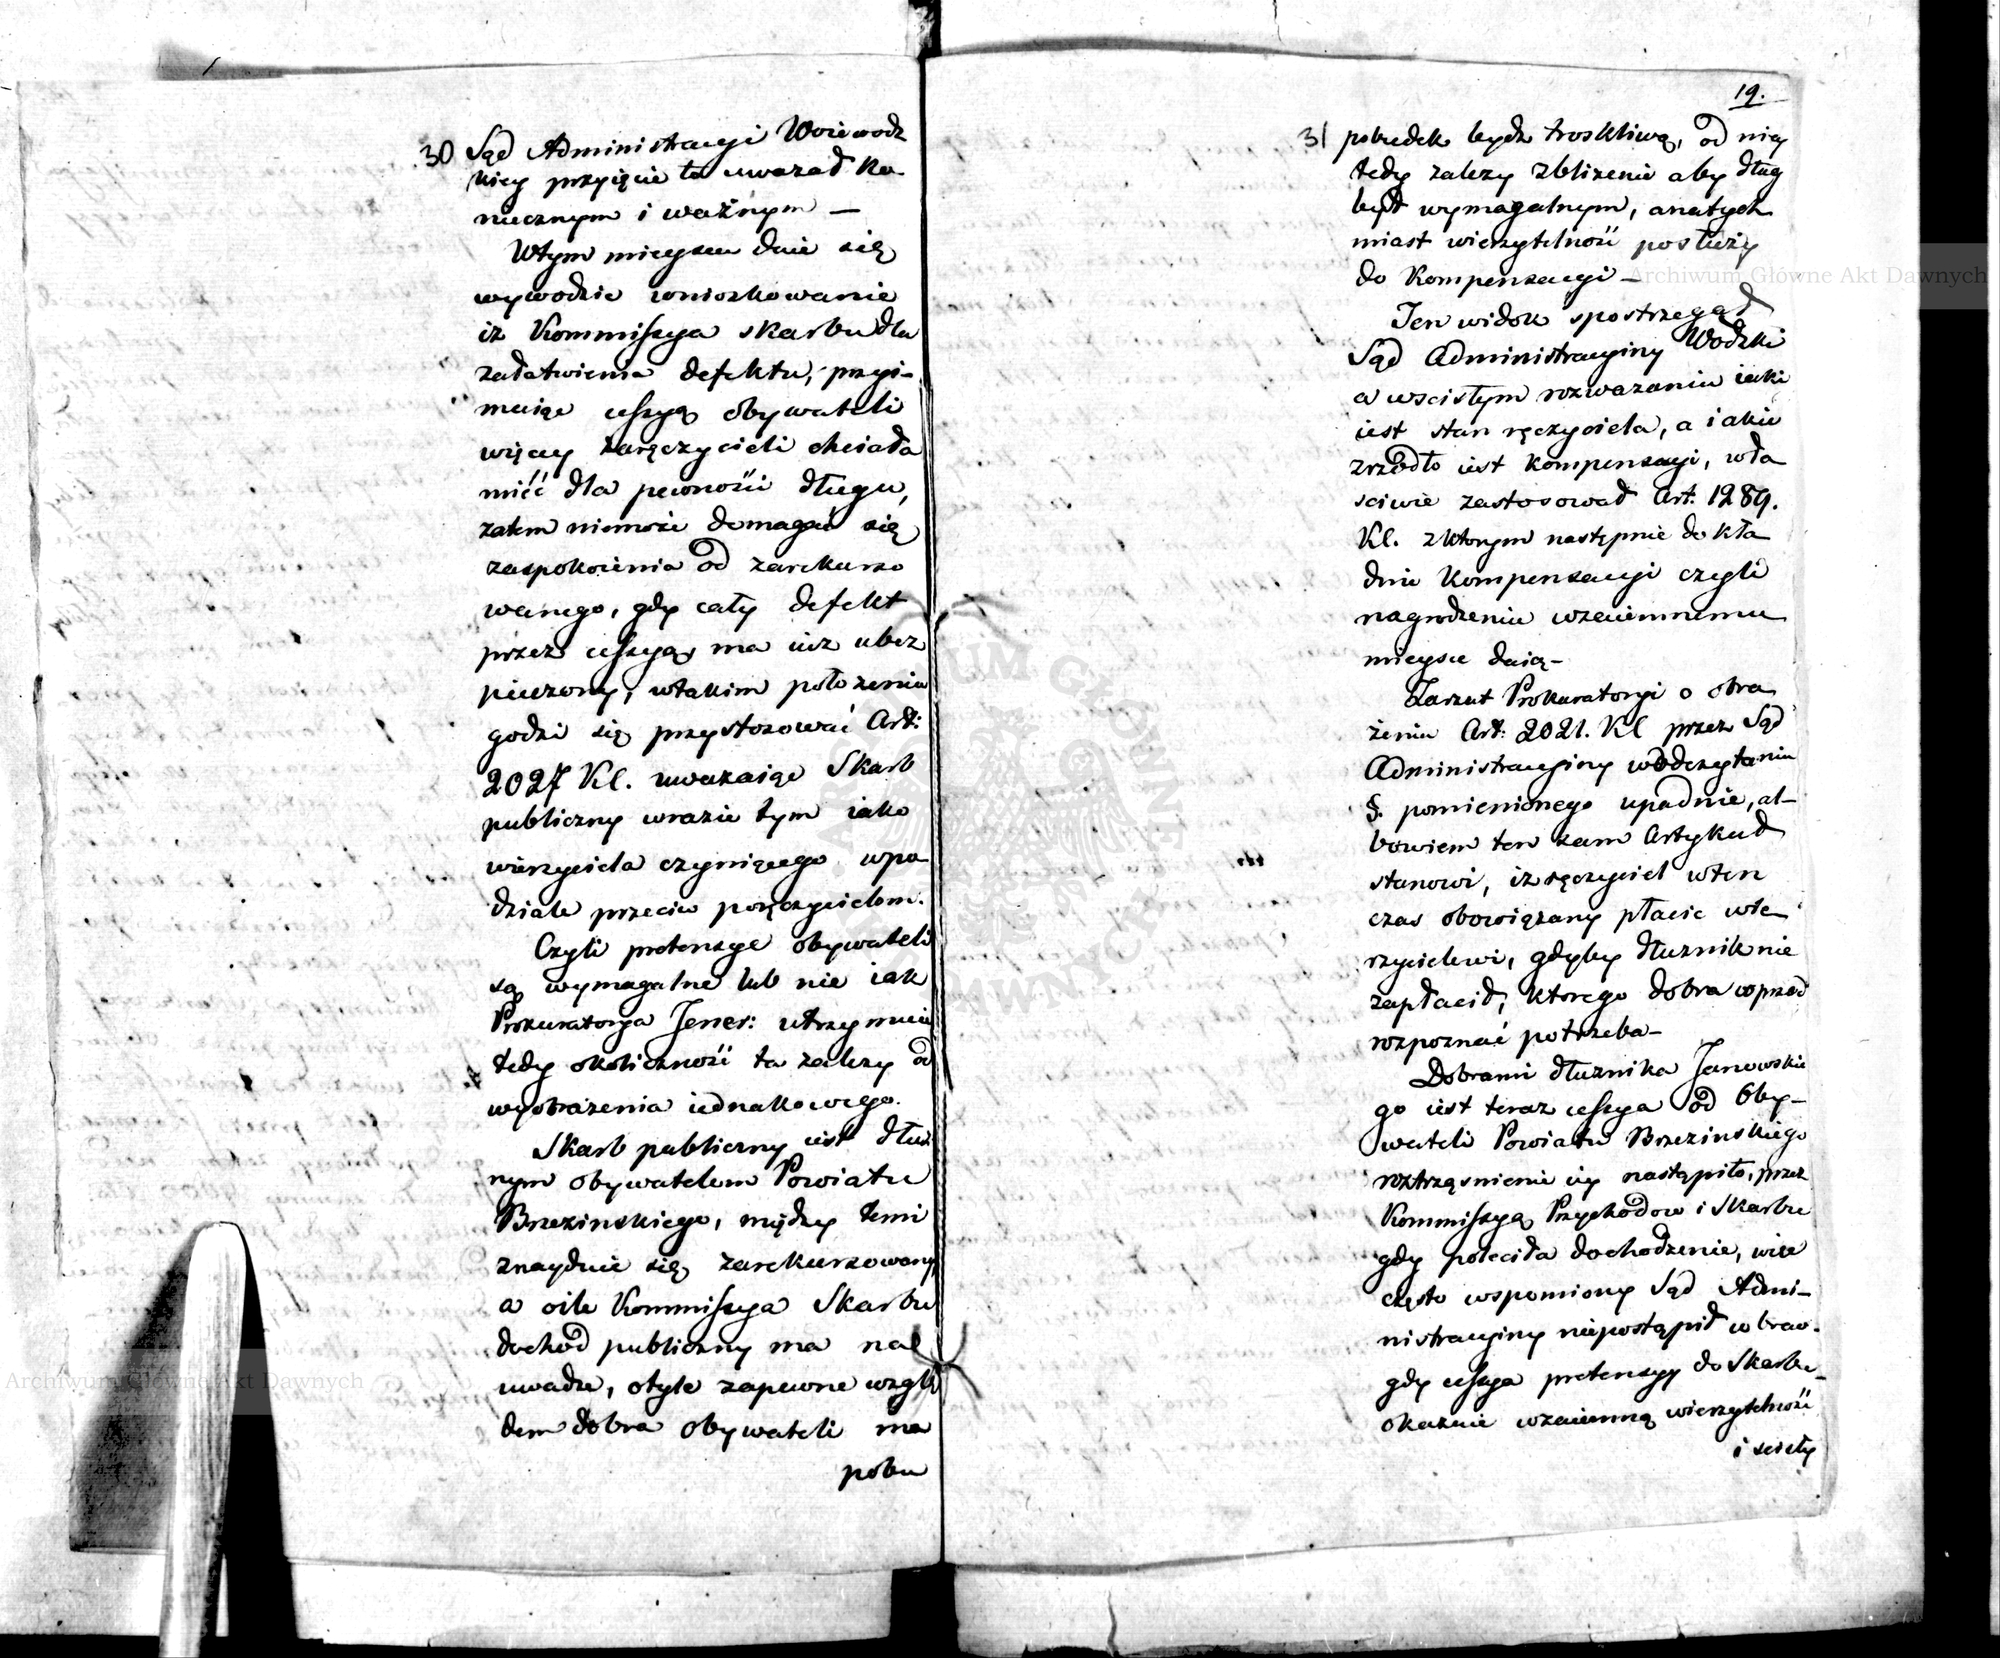 30 Sąd Administracyi Woiewodz
kiey przyięcie to uwazał ko
niecznym i ważnym —
Wtym mieyscu daie się
wywodzie wnioskowanie
iz Kommissya skarbu dla
załatwienia defektu, przyi-
muiąc cessyą obywateli
więcey zaręczycieli chciała
mieć dla pewności długu,
zatem niemoże domagać się
zaspokoienia od zarekurso
wanego, gdy cały defekt
przez cessyą ma iuz ubez
pieczony, wtakim położeniu
godzi się przystosować Art:
2027 Kl. uwazaiąc Skarb
publiczny wrazie tym iako
wierzyciela czyniącego wpo
dziale przeciw poręczycielom.
Czyli pretensye obywateli
są wymagalne lub nie iak
Prokuratorya Jener: utrzymuie
tedy okoliczność ta zalezy od
wyobrażenia iednakowego.
Skarb publiczny iest dłuż
nym obywatelom Powiatu
Brzezinskiego, między temi
znayduie się zarekursowany
a oile Kommissya Skarbu
dochod publiczny ma na
uwadze, otyle zapewne wzglę
dem dobra obywateli ma
pobu
19.
31 pobudek bydz troskliwą, od niey
tedy zalezy zblizenie aby dług
był wymagalnym, anatych
miast wierzytelność posłuży
do Kompensacyi —
Ten widok spostrzegał
Sąd Administracyiny Wodzki
a wscisłym rozwazaniu iaki
iest stan ręczyciela, a iakie
zrzodło iest kompensacyi, wła
sciwie zastosował Art: 1289.
Kl. z ktorym następnie dokła
dnie Kompensacyi czyli
nagrodzeniu wzaiemnemu
mieysce daią —
Zarzut Prokuratoryi o obra
żeniu Art: 2021. Kl przez Sąd
Administracyiny wodczytaniu
§. pomienionego upadnie, al-
bowiem ten sam Artykuł
stanowi, iz ręczyciel wten
czas obowiązany płacic wie
rzycielowi, gdyby dłuznik nie
zapłacił, ktorego dobra wprzód
rozpoznać potrzeba —
Dobrami dłuznika Janowskie
go iest teraz cessya od Oby-
wateli Powiatu Brzezinskiego
roztrząsnienie iey nastąpiło, przez
Kommissyą Przychodow i Skarbu
gdy poleciła dochodzenie, więc
często wspomiony Sąd Admi-
nistracyiny niepostąpił wbrew.
gdy cessya pretensyy do Skarbu
okazuie wzaiemną wierzytelność
i scisły
Archiwum Główne Akt Dawnych
Archiwum Główne Akt Dawnych